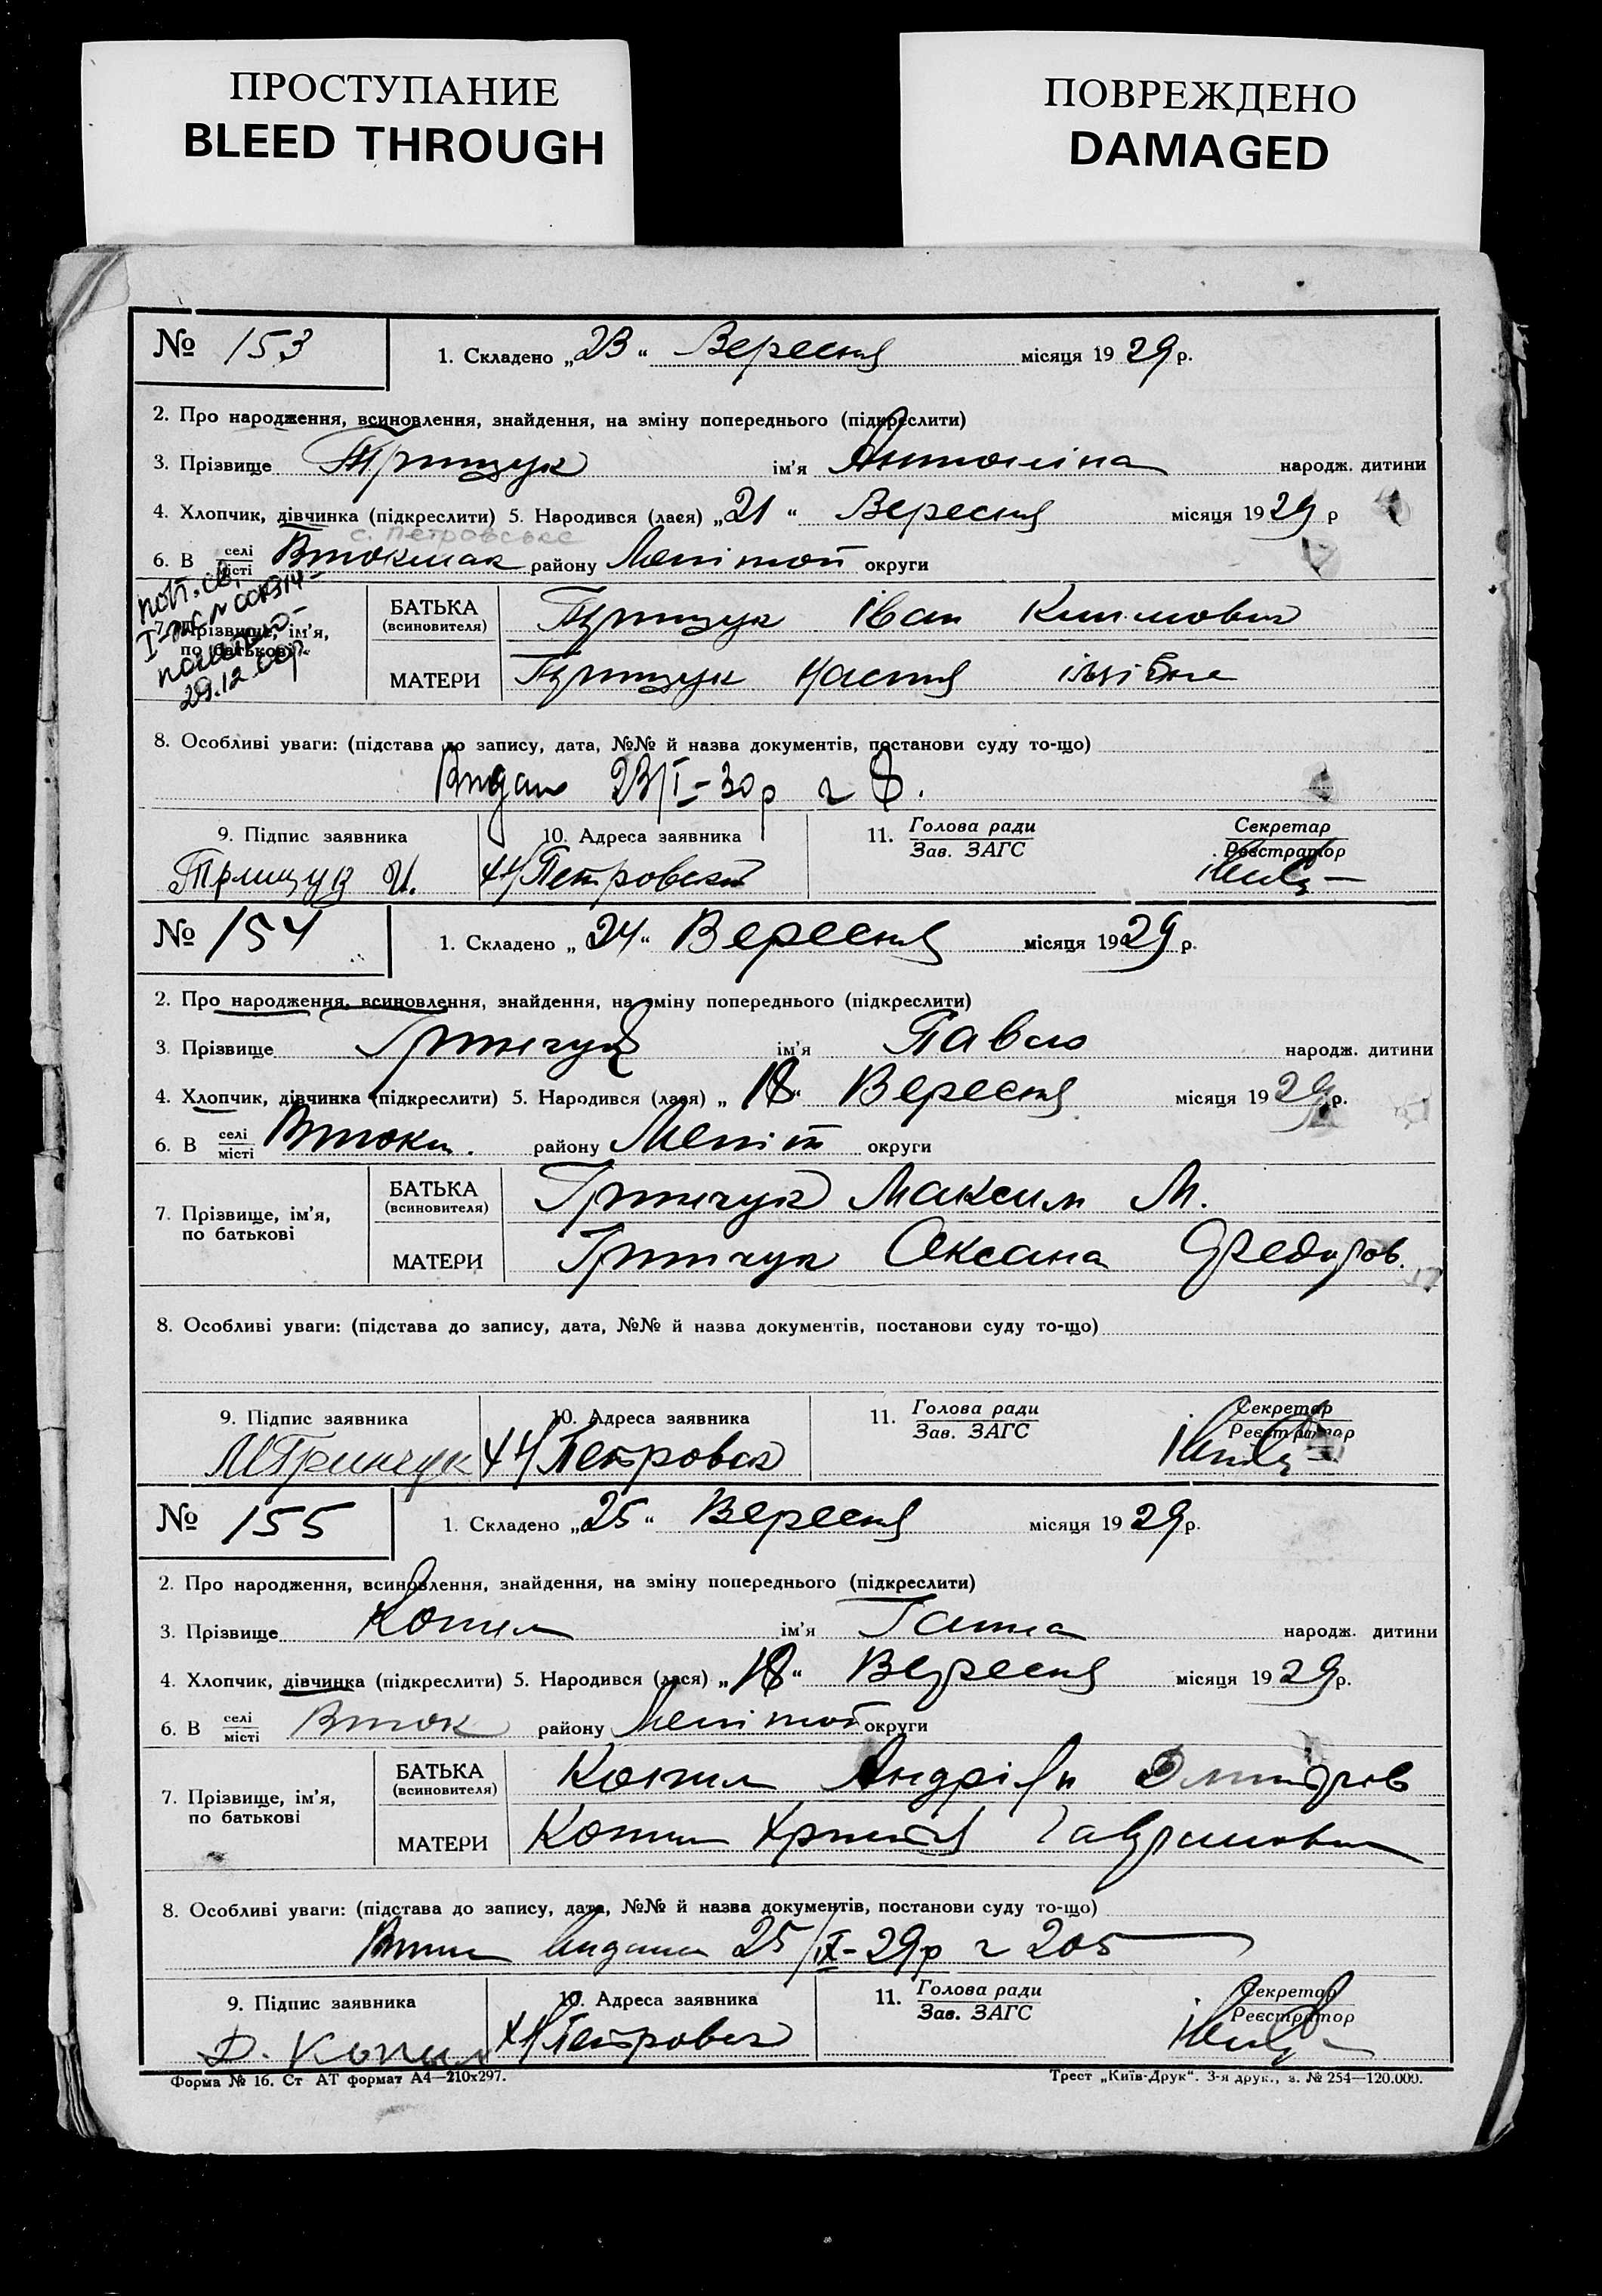 ПРОСТУПАНИЕ
BLEED THROUGH
ПОВРЕЖДЕНО
DAMAGED
№ 153
1. Складено „23“ Вересня місяця 1929 р.
2. Про народження, всиновлення, знайдення, на зміну попереднього (підкреслити)
3. Прізвище Трищук ім'я Антоніна народж. дитини
4. Хлопчик, дівчинка (підкреслити) 5. Народився (лася) „21“ Вересня місяця 1929 р
с. Петровське
6. В селі місті Втокмак району Мелітоп округи
7. Прізвище, ім'я, по батькові
29.12.
БАТЬКА (всиновителя) Трищук Іван Климович
МАТЕРИ Трищук Настя
8. Особливі уваги: (підстава до запису, дата, №№ й назва документів, постанови суду то-що)
Видан 23/I-30р ч 8.
9. Підпис заявника 10. Адреса заявника 11. Голова ради Зав. ЗАГС Секретар Реєстратор
Трищук И. Петровский
№ 154
1. Складено „24“ Вересня місяця 1929 р.
2. Про народження, всиновлення, знайдення, на зміну попереднього (підкреслити)
3. Прізвище Гринчук ім'я Павло народж. дитини
4. Хлопчик, дівчинка (підкреслити) 5. Народився (лася) „18“ Вересня місяця 1929 р.
6. В селі місті Втокм. району Меліт округи
7. Прізвище, ім'я, по батькові
БАТЬКА (всиновителя) Гринчук Максим М.
МАТЕРИ Гринчук Оксана Федоров.
8. Особливі уваги: (підстава до запису, дата, №№ й назва документів, постанови суду то-що)
9. Підпис заявника 10. Адреса заявника 11. Голова ради Зав. ЗАГС Секретар Реєстратор
М Гринчук Петровск
№ 155
1. Складено „25“ Вересня місяця 1929 р.
2. Про народження, всиновлення, знайдення, на зміну попереднього (підкреслити)
3. Прізвище Копил ім'я Ганна народж. дитини
4. Хлопчик, дівчинка (підкреслити) 5. Народився (лася) „18“ Вересня місяця 1929 р.
6. В селі місті Вток району Мелітоп округи
7. Прізвище, ім'я, по батькові
БАТЬКА (всиновителя) Копил Андрій Дмитров
МАТЕРИ Копил Христя
8. Особливі уваги: (підстава до запису, дата, №№ й назва документів, постанови суду то-що)
видана 25/IX-29р ч 205
9. Підпис заявника 10. Адреса заявника 11. Голова ради Зав. ЗАГС Секретар Реєстратор
Д. Копил Петровск
Форма № 16. Ст АТ формат А4—210х297.
Трест „Київ-Друк“. 3-я друк., з. № 254—120.000.